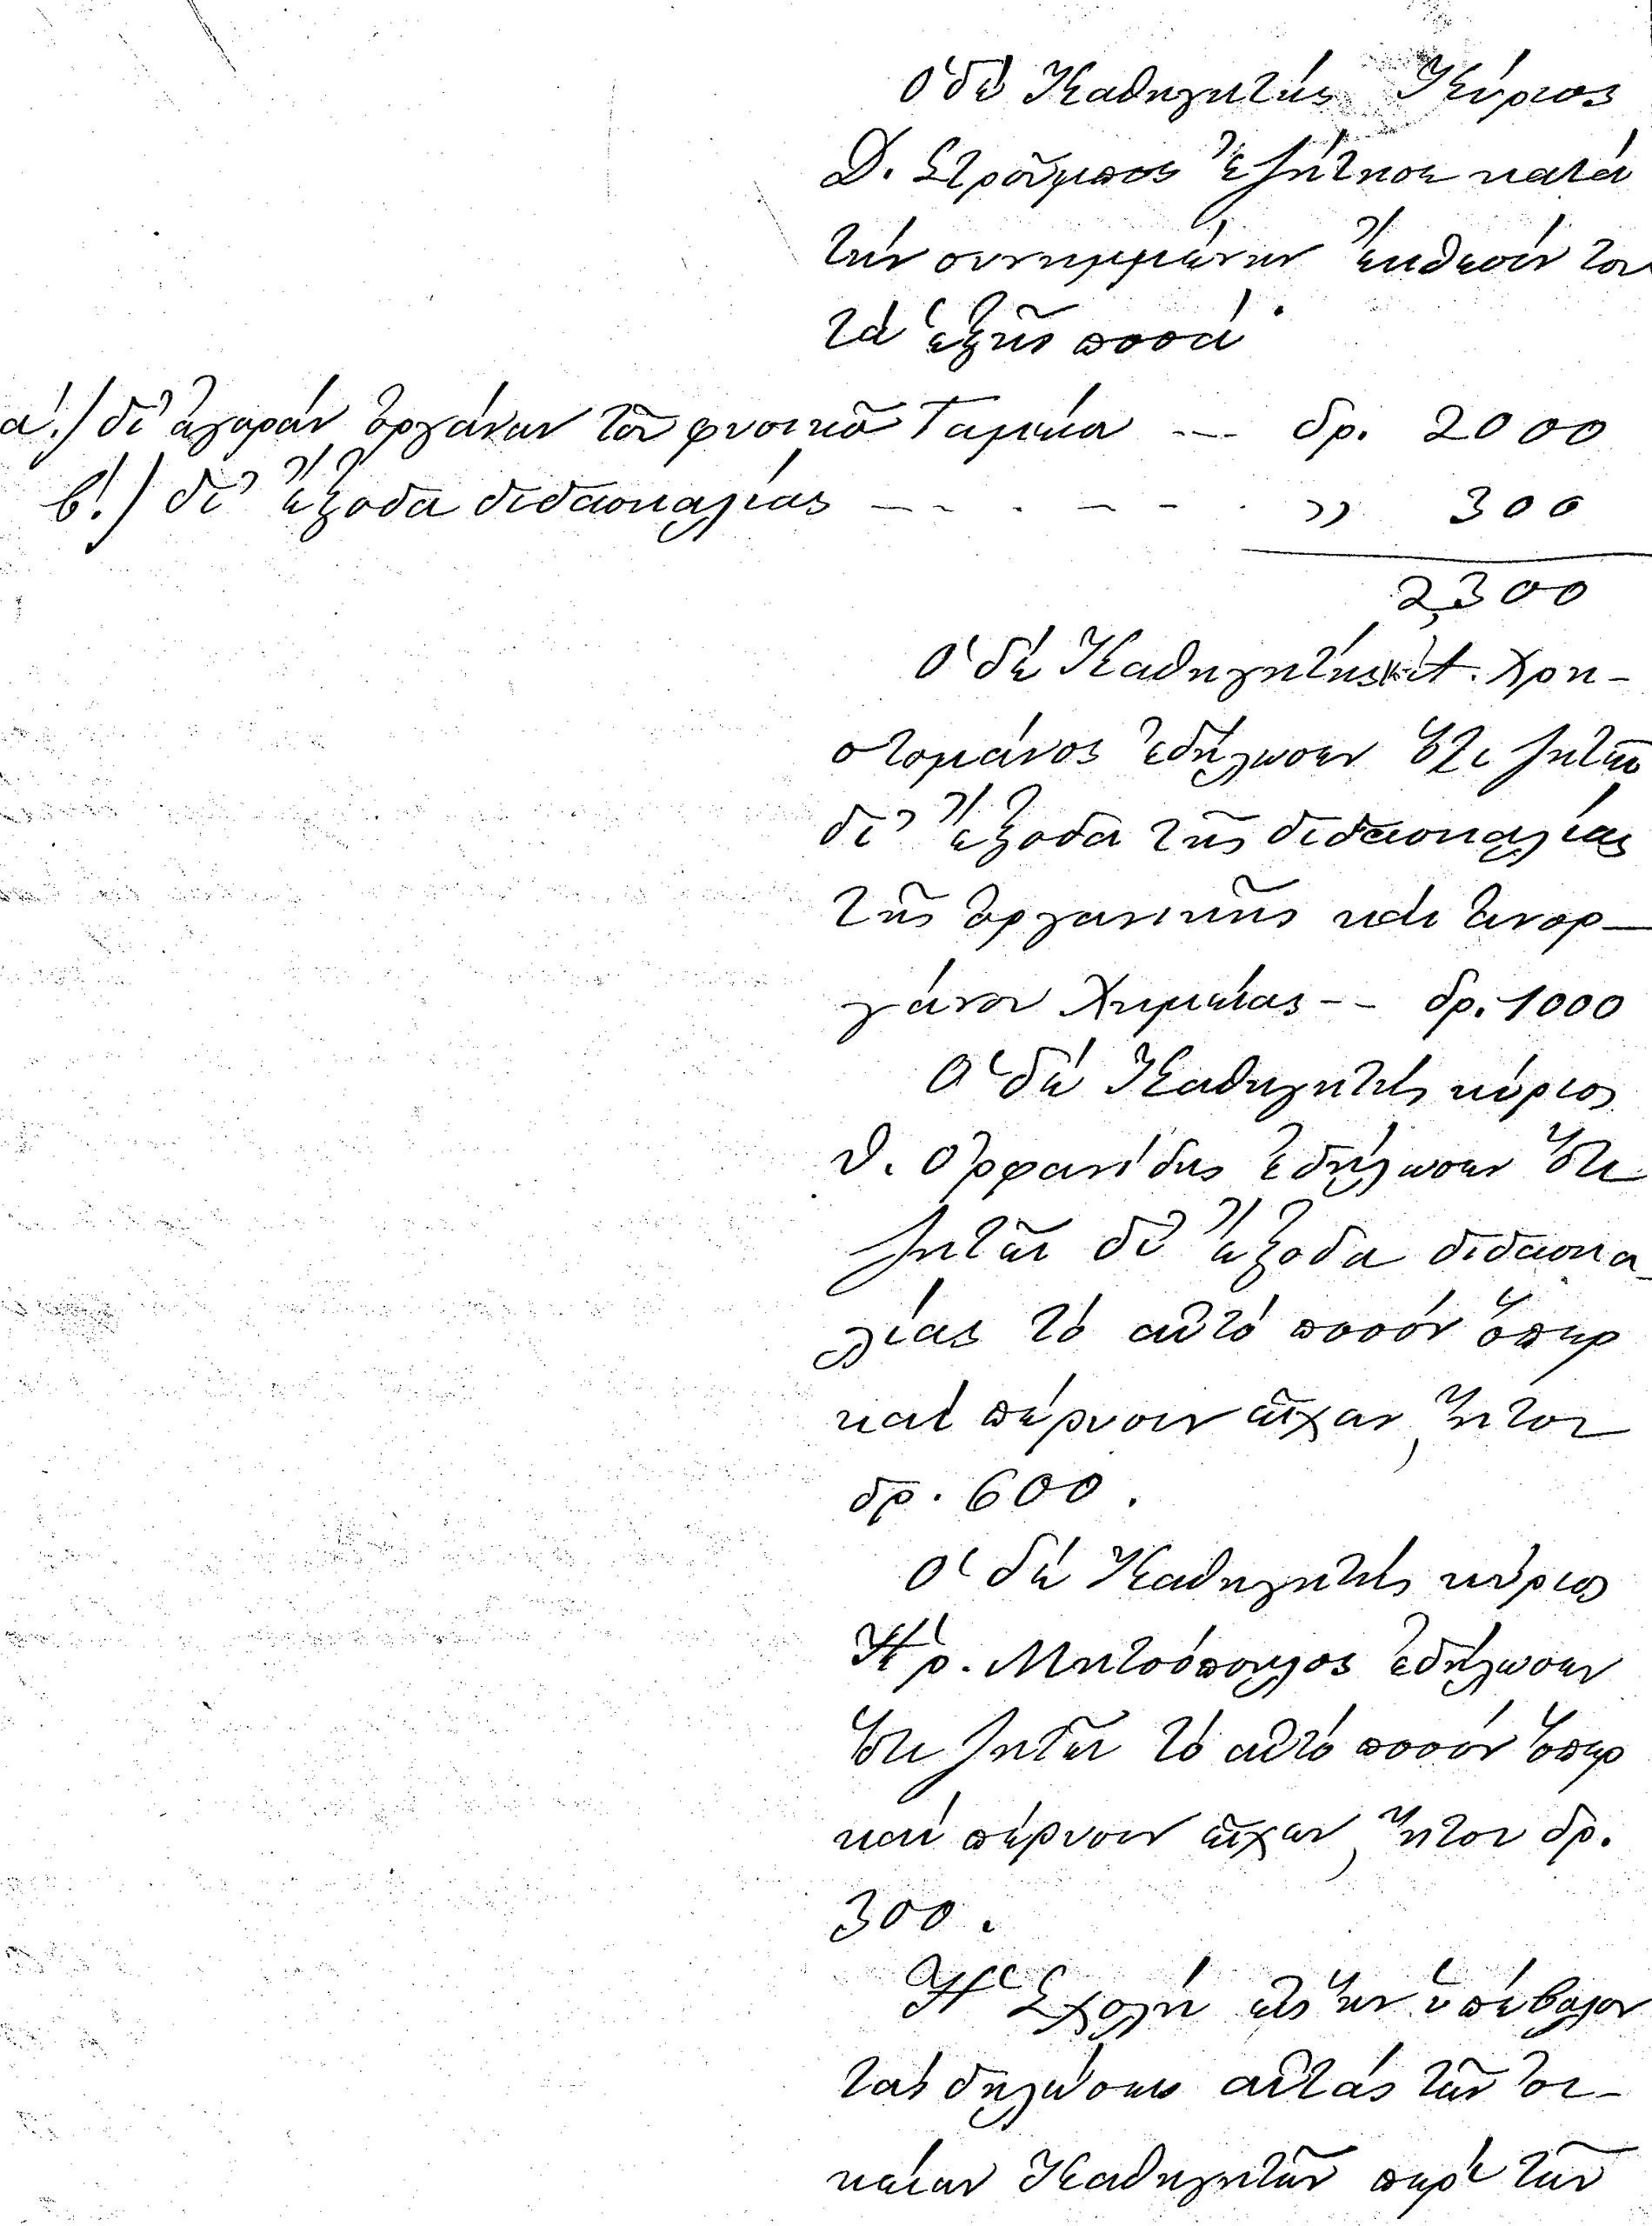 Ὁ δὲ Καθηγητὴς Κύριος
Δ. Στροῦμπος ἐζήτησε κατὰ
τὴν συνημμένην ἔκθεσίν του
τὰ ἑξῆς ποσά·
α'.) δι' ἀγορὰν ὀργάνων τοῦ φυσικοῦ Ταμεία --- δρ. 2000
β'.) δι' ἔξοδα διδασκαλίας - - . - - - . » 300
2,300
Ὁ δὲ Καθηγητὴς κ. Ἀ. Χρη-
στομάνος ἐδήλωσεν ὅτι ζητεῖ
δι' ἔξοδα τῆς διδασκαλίας
τῆς ὀργανικῆς καὶ ἀνορ-
γάνου Χημείας -- δρ. 1000
Ὁ δὲ Καθηγητὴς κύριος
Θ. Ὀρφανίδης ἐδήλωσεν ὅτι
ζητεῖ δι' ἔξοδα διδασκα-
λίας τὸ αὐτὸ ποσὸν ὅπερ
καὶ πέρυσιν εἶχεν, ἤτοι
δρ. 600.
Ὁ δὲ Καθηγητὴς κύριος
Ἡρ. Μητσόπουλος ἐδήλωσεν
ὅτι ζητεῖ τὸ αὐτὸ ποσὸν ὅπερ
καὶ πέρυσιν εἶχεν, ἤτοι δρ.
300.
Ἡ Σχολὴ εἰς ἣν ὑπέβαλον
τὰς δηλώσεις αὐτὰς τῶν οἰ-
κείων Καθηγητῶν περὶ τῶν